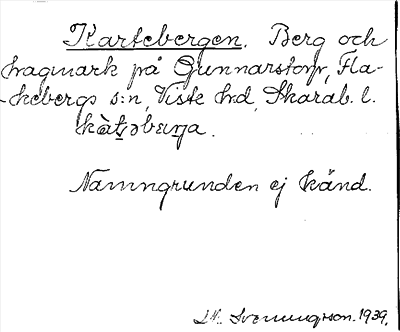 Kartebergen. Berg och
hagmark på Gunnarstorp, Fla-
kebergs s:n, Viste hd, Skarab. l.
Namngrunden ej känd.
Svenungsson. 1939.